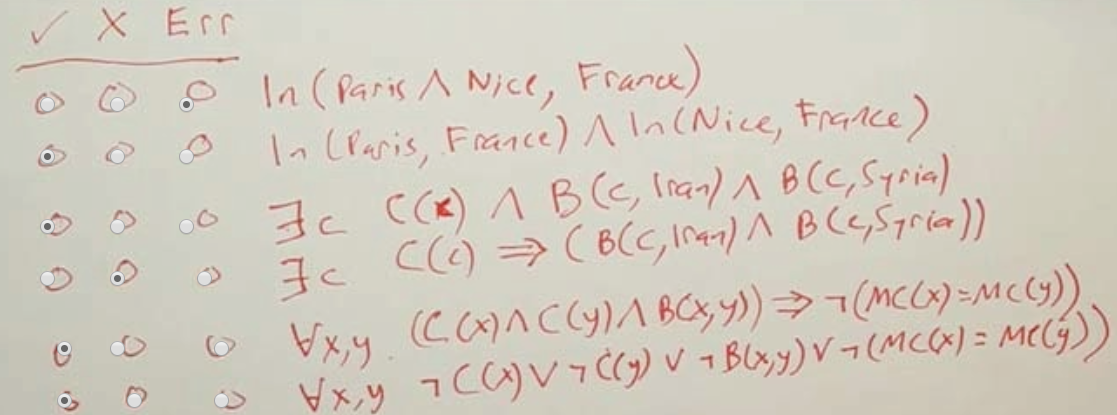 ✓ X Err
In(Paris ∧ Nice, France)
In(Paris, France) ∧ In(Nice, France)
∃c C(c) ∧ B(c, Iran) ∧ B(c, Syria)
∃c C(c) ⇒ (B(c, Iran) ∧ B(c, Syria))
∀x,y. (C(x) ∧ C(y) ∧ B(x,y)) ⇒ ¬(MC(x) = MC(y))
∀x,y ¬C(x) ∨ ¬C(y) ∨ ¬B(x,y) ∨ ¬(MC(x) = MC(y))